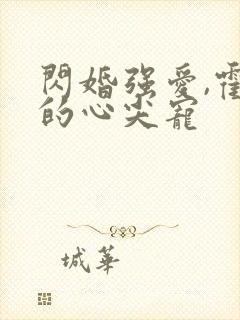 閃婚强愛,霍
的心尖寵
城華